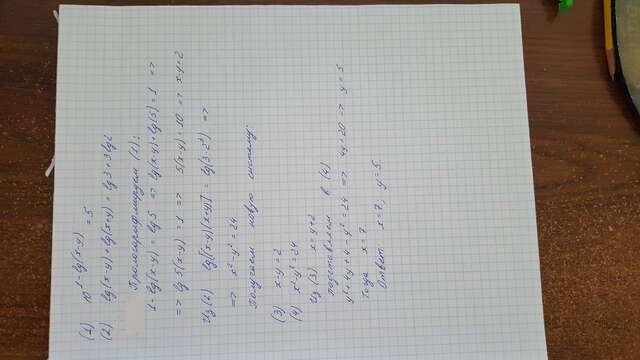 (1) 10^(1-lg(x-y)) = 5
(2) lg(x-y)+lg(x+y) = lg3+3lg2
Прологарифмируем (1):
1-lg(x-y) = lg5 => lg(x-y)+lg(5) = 1 =>
=> lg5(x-y) = 1 => 5(x-y) = 10 => x-y = 2
Из (2) lg[(x-y)(x+y)] = lg(3·2³) =>
=> x²-y² = 24
Получаем новую систему:
(3) x-y = 2
(4) x²-y² = 24
Из (3) x = y+2
Подставляем в (4)
y²+4y+4-y² = 24 => 4y = 20 => y = 5
Тогда x = 7.
Ответ: x = 7, y = 5.